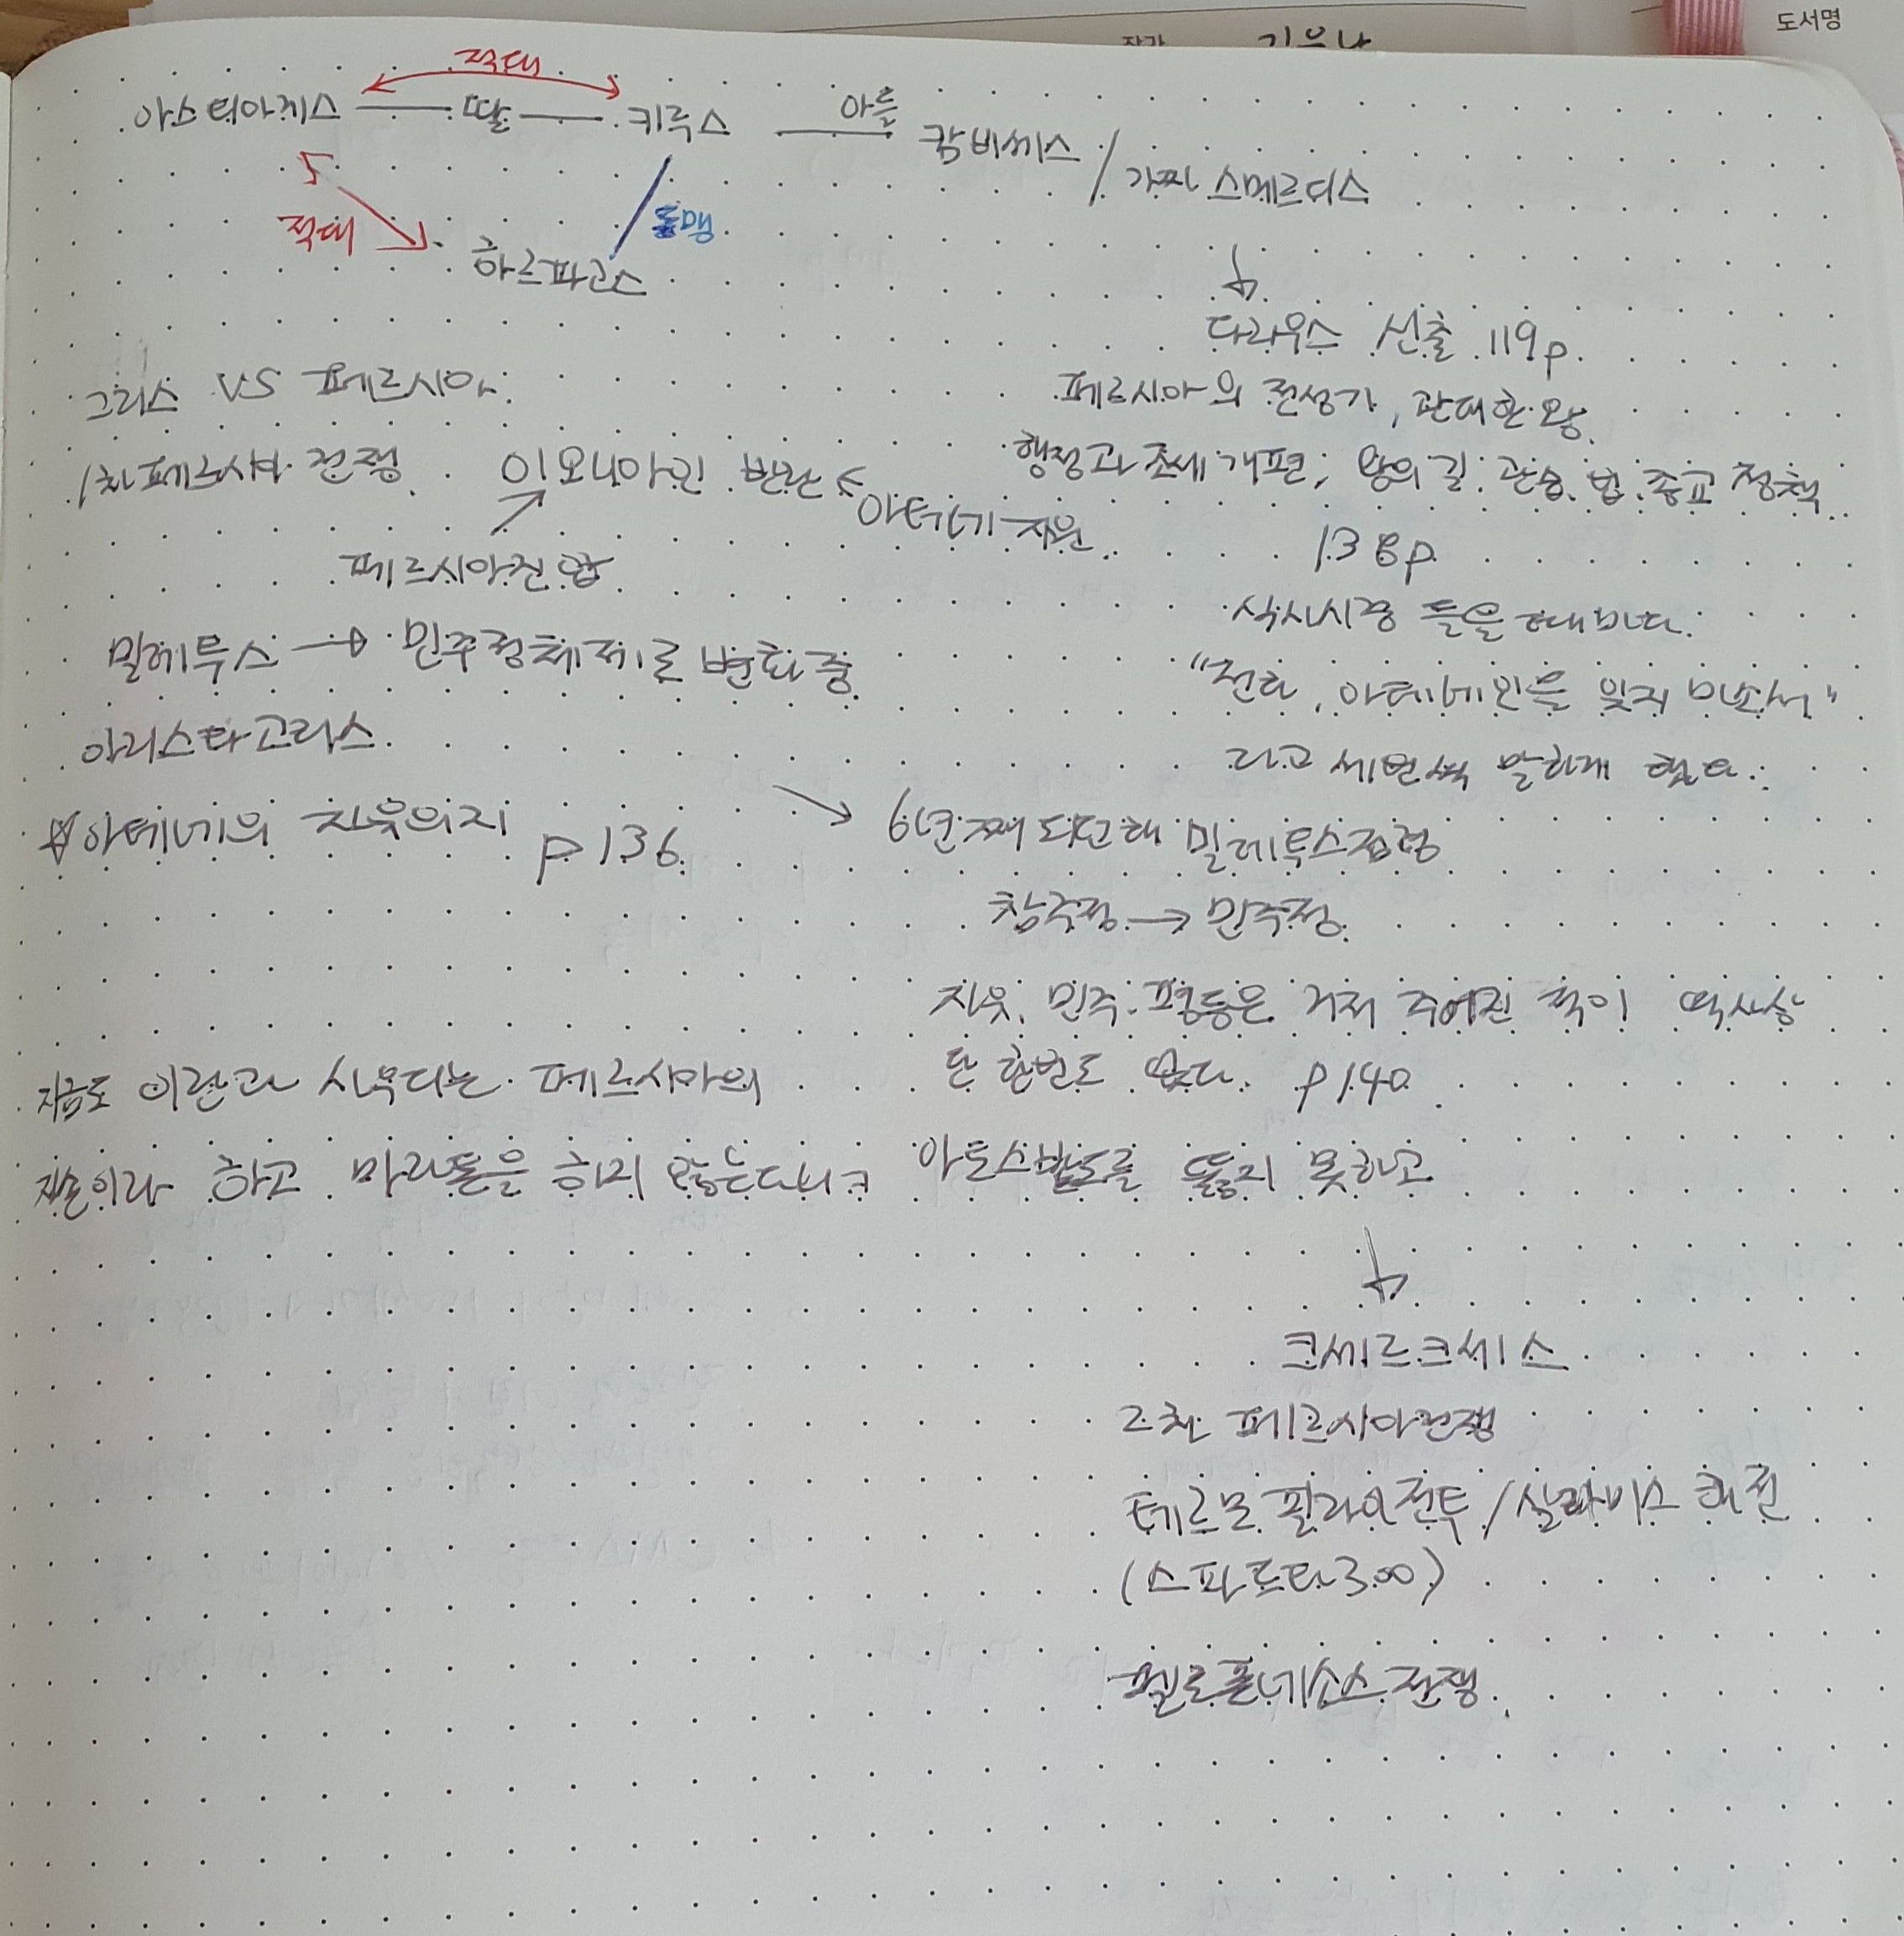 도서명
적대
아스티아게스 — 딸 — 키루스 — 아들 캄비세스 / 가짜 스메르디스
적대
동맹
하르파고스
다리우스 선출 119p.
페르시아의 전성기, 관대한 왕.
행정과 조세 개편, 왕의 길, 관습, 법, 종교 정책
138p
식사시중 들을 때마다.
"전하, 아테네인을 잊지 마소서"
라고 세번씩 말하게 했다.
그리스 VS 페르시아.
1차 페르시아 전쟁 이오니아인 반란
아테네 지원
페르시아진압
밀레투스 → 민주정체제로 변화중
아리스타고라스
☆아테네의 자유의지 p136
→ 6년째 되던해 밀레투스점령
참주정 → 민주정.
자유, 민주, 평등은 거저 주어진 적이 역사상
단 한번도 없다. p140
지금도 이란과 시우디는 페르시아의
자손이라 하고 마라톤을 하지 않는다니ㅋ
아토스반도를 뚫지 못하고
크세르크세스
2차 페르시아전쟁
테르모필라이전투 / 살라미스 해전
(스파르타300)
펠로폰네소스 전쟁.